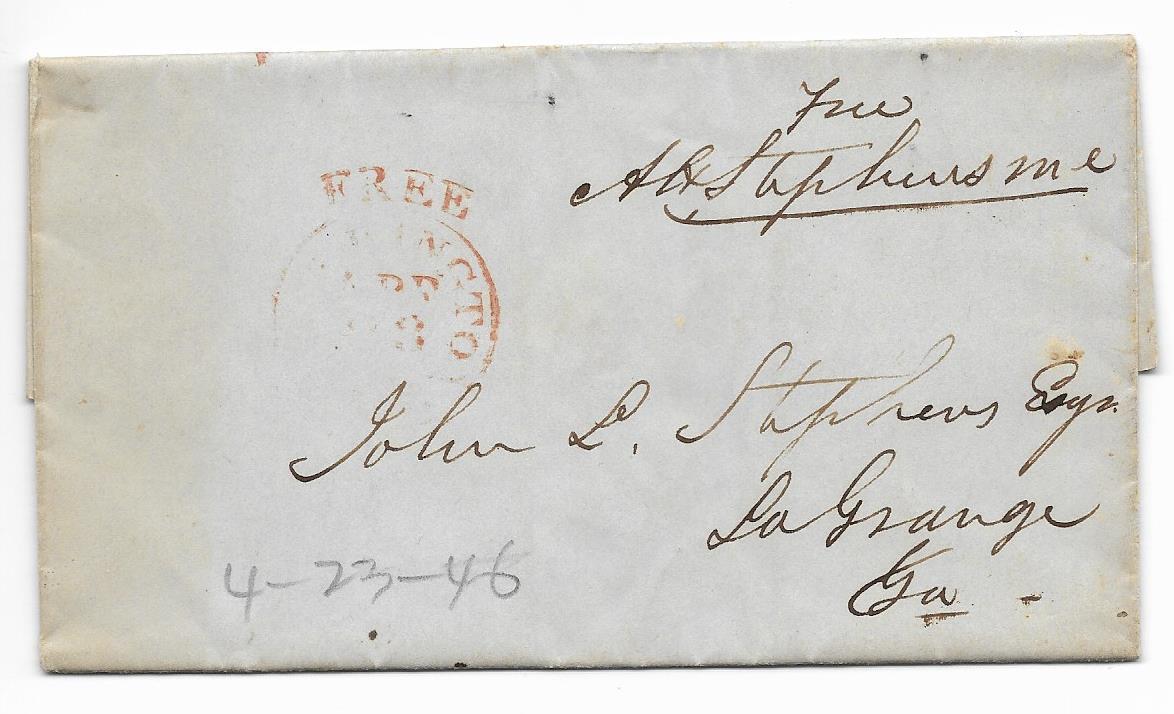 Free
AH Stephens m c
FREE
WASHINGTO
APR
23
John L. Stephens Esqr.
La Grange
Ga
4-23-46